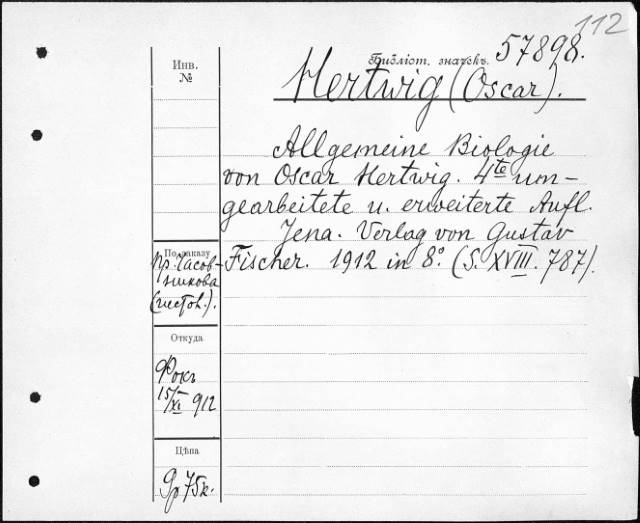 112
57898.
Библіот. значекъ.
Инв.
№
Hertwig (Oscar).
Allgemeine Biologie
von Oscar Hertwig. 4te um-
gearbeitete u. erweiterte Aufl.
Jena. Verlag von Gustav
Fischer. 1912 in 8º. (S. XVIII. 787).
По заказу
пр. Часов-
никова
(гистол.).
Откуда
Фокъ
15/XI 912
Цѣна
9р 75к.